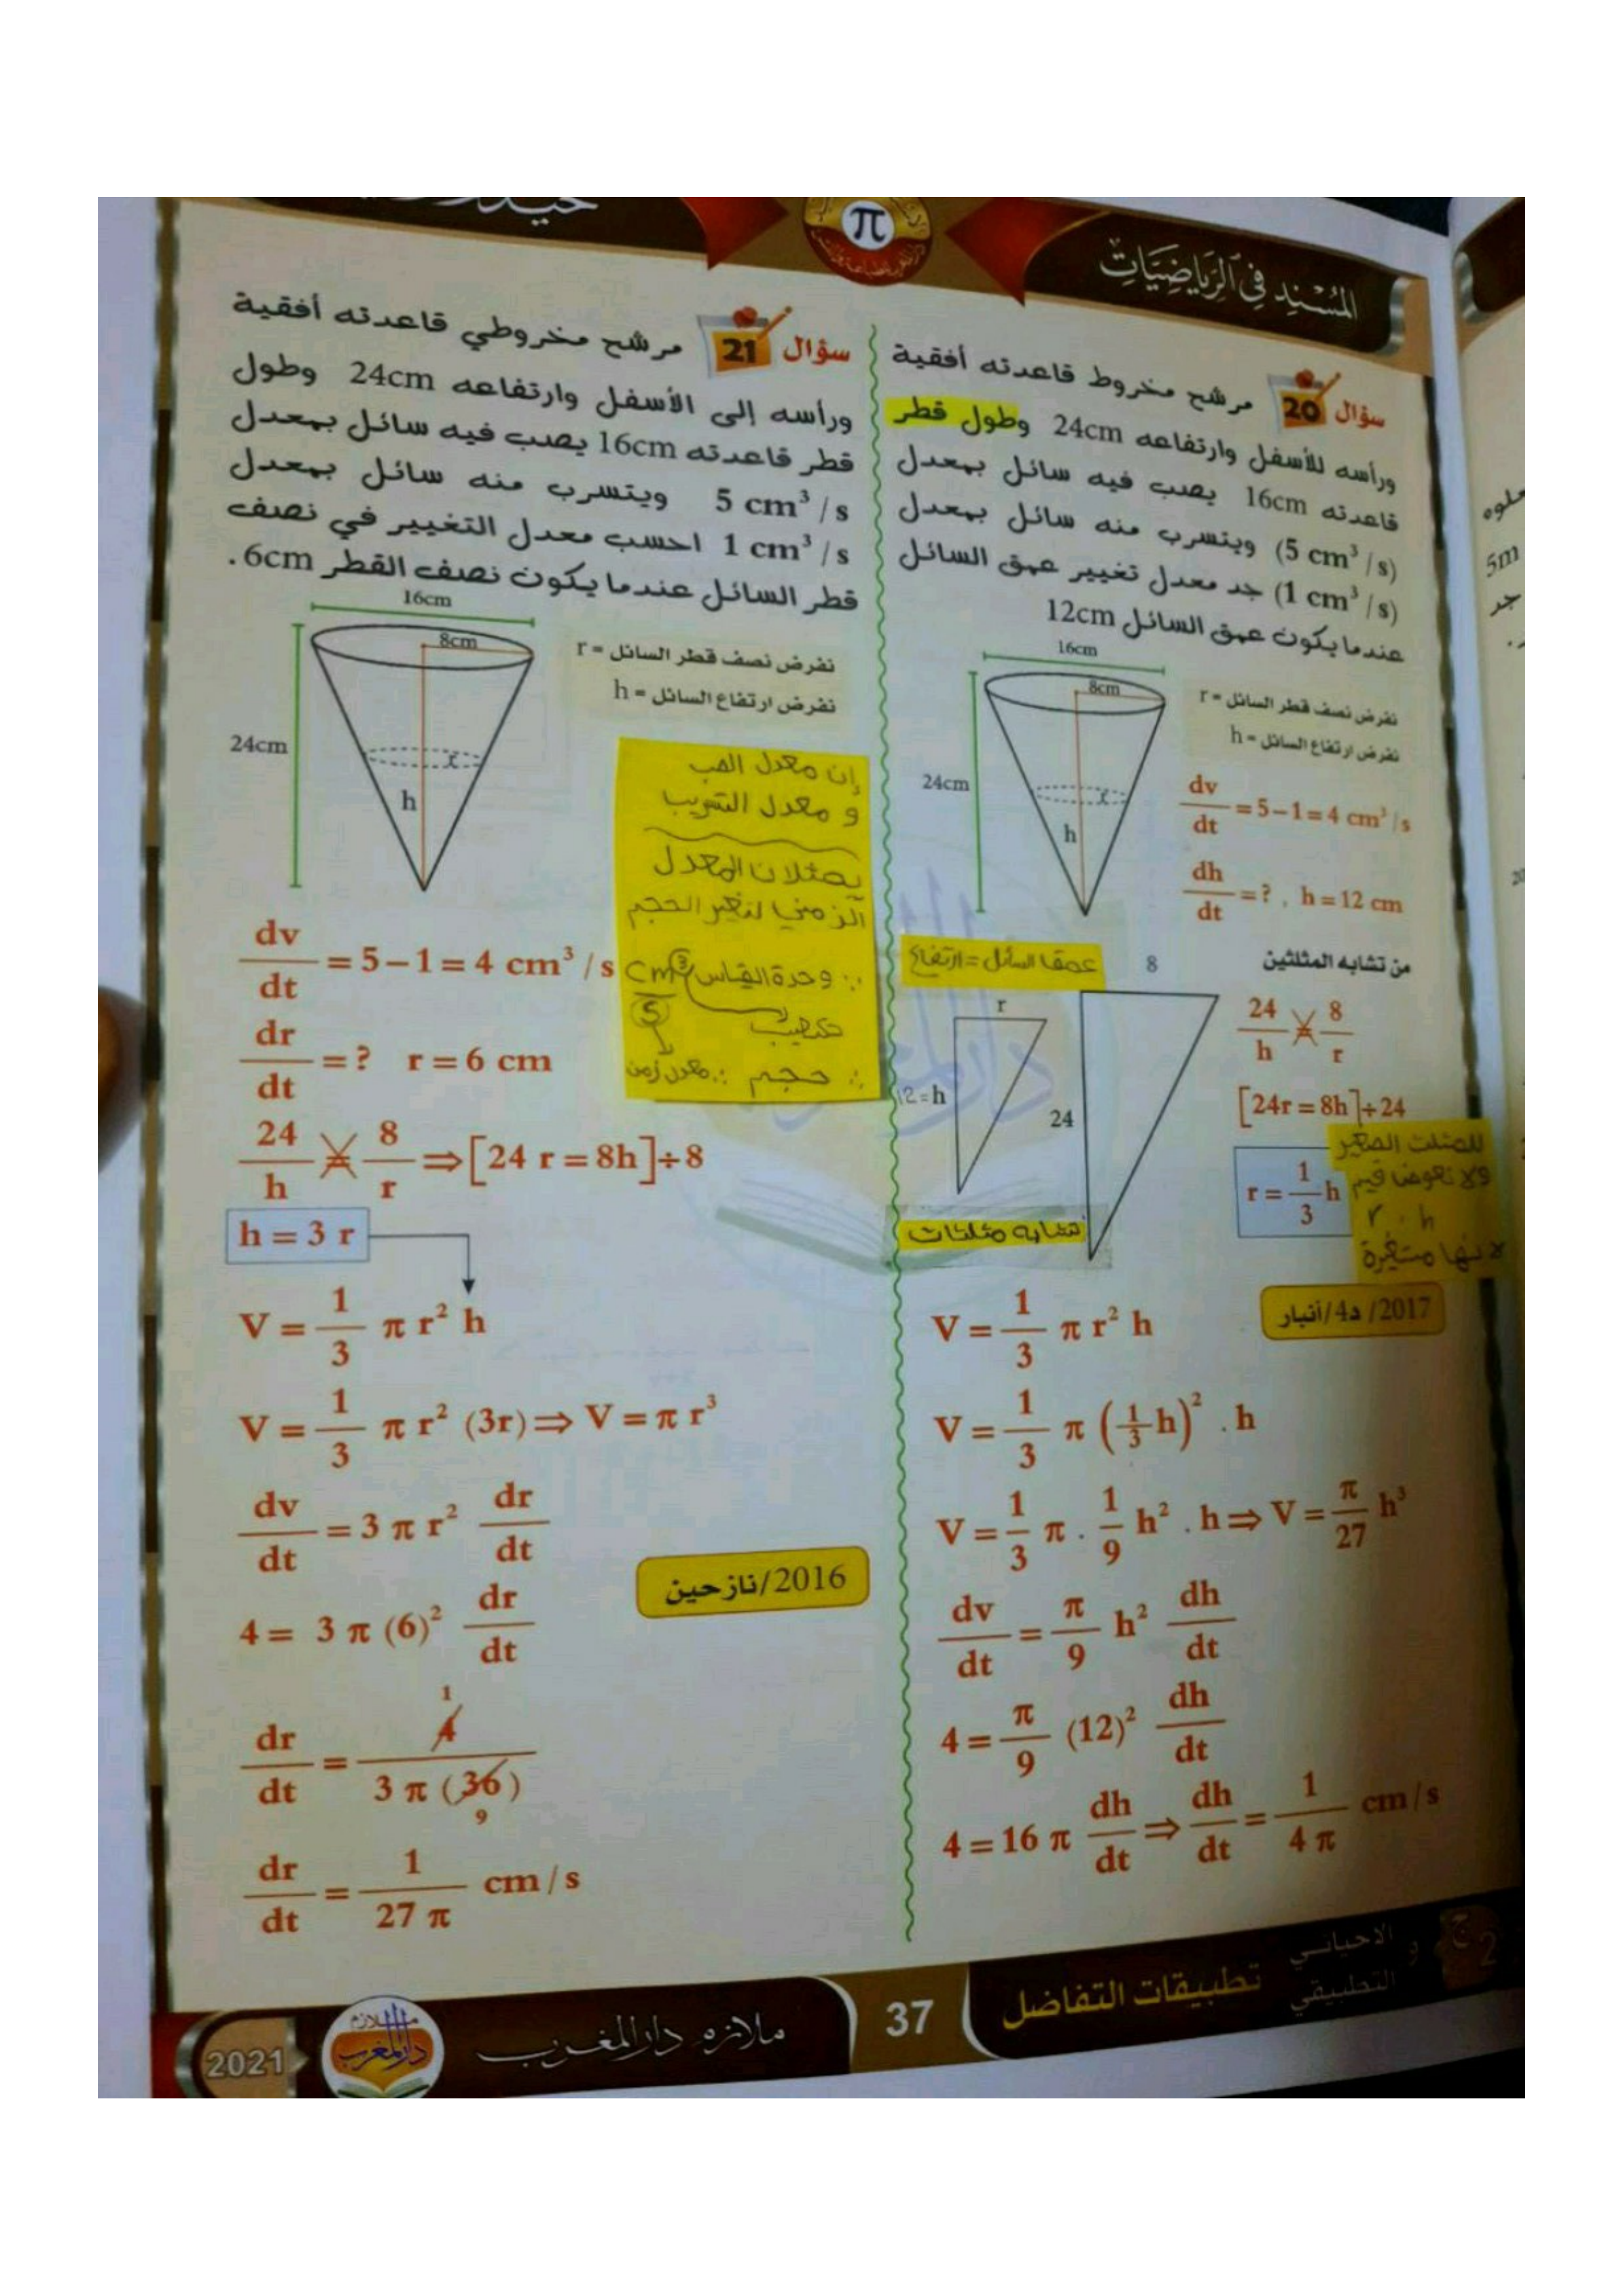 المُسْنِد فِي الرِّيَاضِيَّاتِ
π
سؤال 20 مرشح مخروط قاعدته أفقية
ورأسه للأسفل وارتفاعه 24cm وطول قطر
قاعدته 16cm يصب فيه سائل بمعدل
(5 cm³ / s) ويتسرب منه سائل بمعدل
(1 cm³ / s) جد معدل تغيير عمق السائل
عندما يكون عمق السائل 12cm
16cm
8cm
24cm
r
h
نفرض نصف قطر السائل = r
نفرض ارتفاع السائل = h
dv/dt = 5 – 1 = 4 cm³ / s
dh/dt = ? , h = 12 cm
عمق السائل = ارتفاع
من تشابه المثلثين
8
r
12 = h
24
24/h = 8/r
[24r = 8h] ÷ 24
r = 1/3 h
للمثلث الصغير
ولا نعوض قيم
r . h
لانها متغيرة
تشابه مثلثات
2017 / د4 / أنبار
V = 1/3 π r² h
V = 1/3 π (1/3 h)² . h
V = 1/3 π . 1/9 h² . h ⇒ V = π/27 h³
dv/dt = π/9 h² dh/dt
4 = π/9 (12)² dh/dt
4 = 16 π dh/dt ⇒ dh/dt = 1/4π cm / s
سؤال 21 مرشح مخروطي قاعدته أفقية
ورأسه إلى الأسفل وارتفاعه 24cm وطول
قطر قاعدته 16cm يصب فيه سائل بمعدل
5 cm³ / s ويتسرب منه سائل بمعدل
1 cm³ / s احسب معدل التغيير في نصف
قطر السائل عندما يكون نصف القطر 6cm .
16cm
8cm
24cm
r
h
نفرض نصف قطر السائل = r
نفرض ارتفاع السائل = h
إن معدل الصب
و معدل التسريب
يمثلان المعدل
الزمني لتغير الحجم
∴ وحدة القياس cm³
تكعيب
S
∴ حجم ∴ معدل زمن
dv/dt = 5 – 1 = 4 cm³ / s
dr/dt = ? r = 6 cm
24/h = 8/r ⇒ [24 r = 8h] ÷ 8
h = 3 r
V = 1/3 π r² h
V = 1/3 π r² (3r) ⇒ V = π r³
dv/dt = 3 π r² dr/dt
4 = 3 π (6)² dr/dt
2016 / نازحين
1
dr/dt = 4 / 3 π (36)
9
dr/dt = 1/27 π cm / s
ج 2 و الاحيائي
التطبيقي
تطبيقات التفاضل
37
ملازم دار المغرب
ملازم
دار المغرب
2021
5m
جد